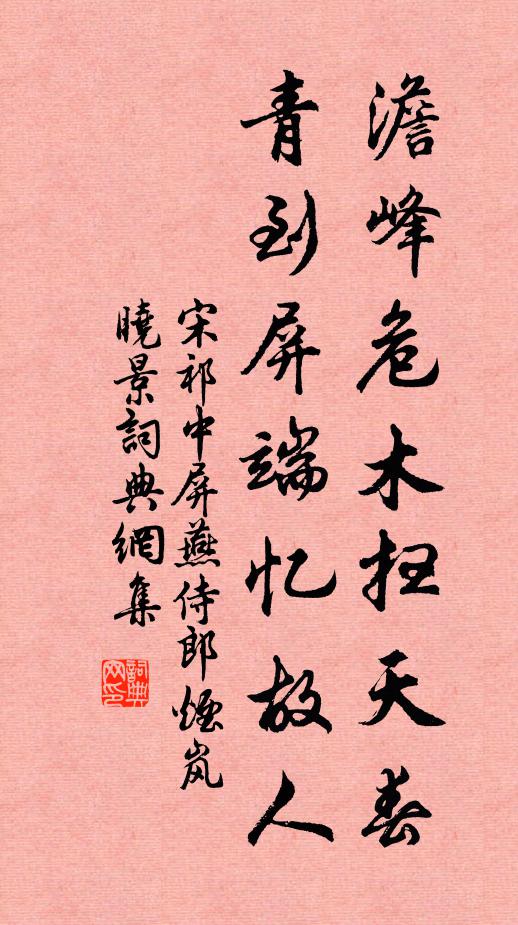 澹峰危木扫天春
青到屏端忆故人
宋祁中屏燕侍郎煙岚
曉景詞典網集
詞典網印